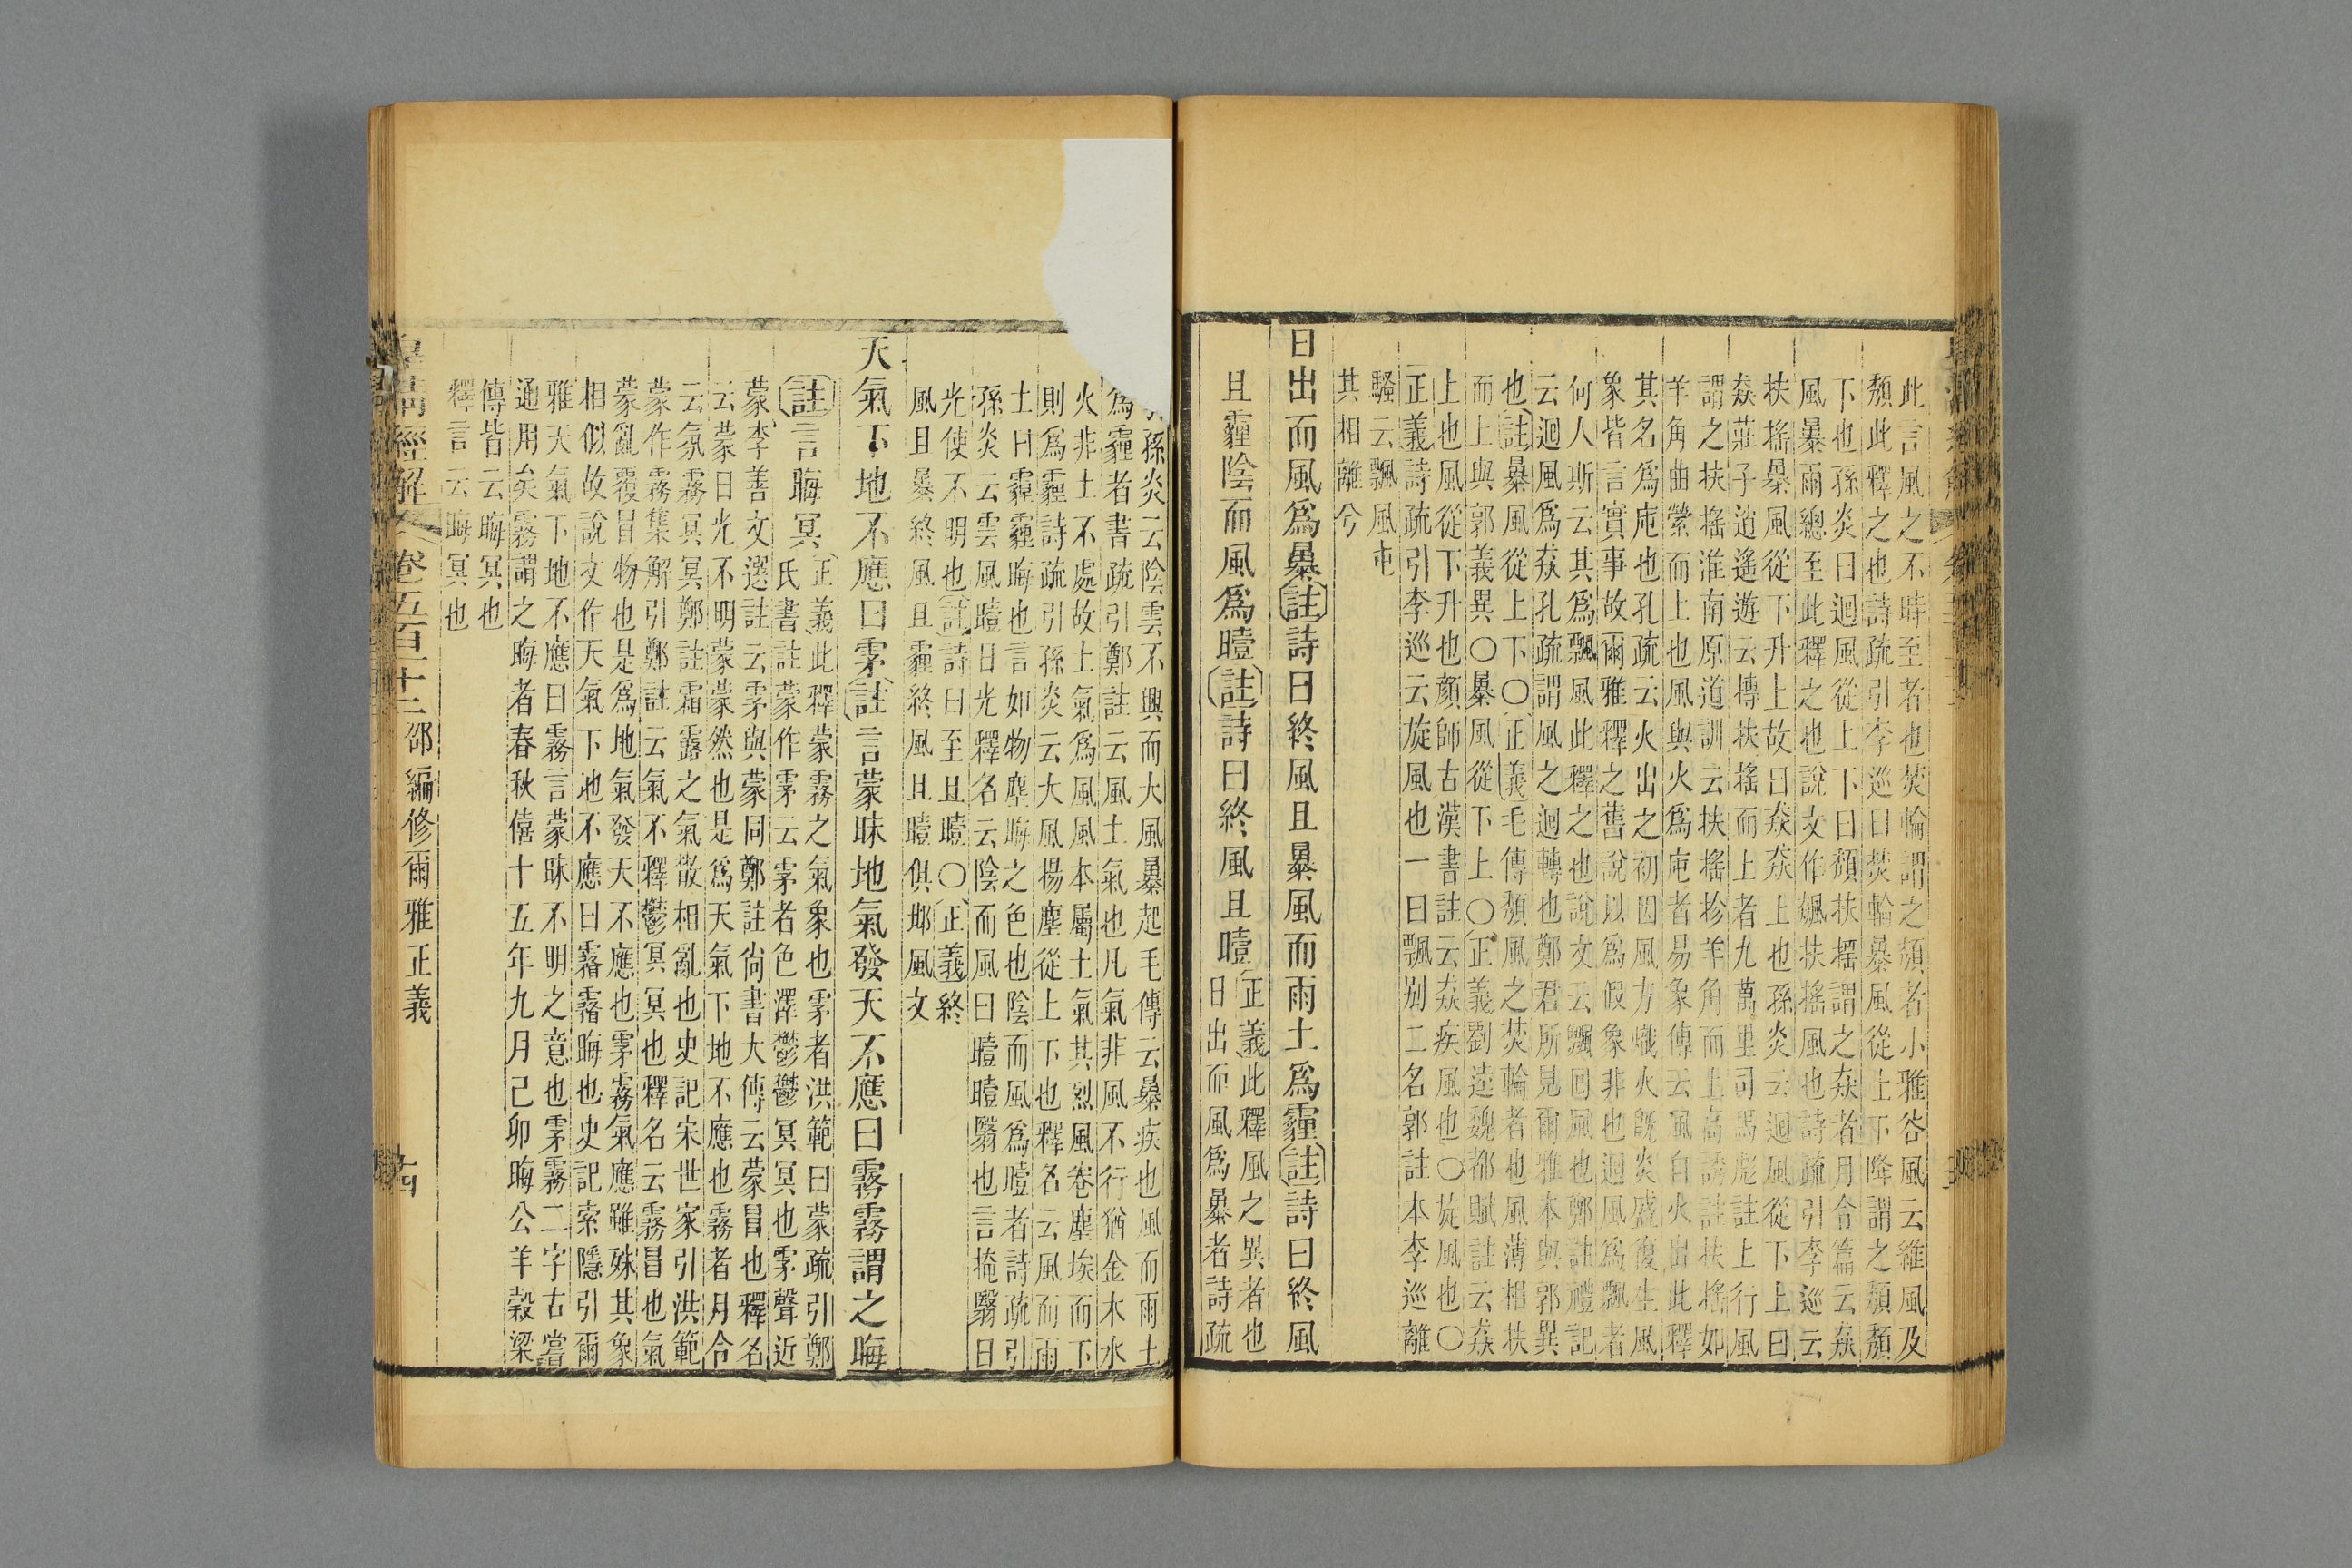 此言風之不時至者也焚輪謂之頹者小雅谷風云維風及
頹此釋之也詩疏引李巡曰焚輪暴風從上下降謂之頹頹
下也孫炎曰迴風從上下曰頹扶搖謂之猋者月令篇云猋
風暴雨總至此釋之也說文作飆扶搖風也詩疏引李巡云
扶搖暴風從下升上故曰猋猋上也孫炎云迴風從下上曰
猋莊子逍遙遊云摶扶搖而上者九萬里司馬彪註上行風
謂之扶搖淮南原道訓云扶搖抮羊角而上高誘註扶搖如
羊角曲縈而上也風與火為庉者易象傳云風自火出此釋
其名為庉也孔疏云火出之初因風方熾火既炎盛復生風
象皆言實事故爾雅釋之舊說以為假象非也迴風為飄者
何人斯云其為飄風此釋之也說文云飄回風也鄭註禮記
云迴風為猋孔疏謂風之迴轉也鄭君所見爾雅本與郭異
也註暴風從上下○正義毛傳頹風之焚輪者也風薄相扶
而上與郭義異○暴風從下上○正義劉逵魏都賦註云猋
上也風從下升也顏師古漢書註云猋疾風也○旋風也○
正義詩疏引李巡云旋風也一曰飄別二名郭註本李巡離
騷云飄風屯
其相離兮
日出而風為暴註詩曰終風且暴風而雨土為霾註詩曰終風
且霾陰而風為曀註詩曰終風且曀正義此釋風之異者也
日出而風為暴者詩疏
孫炎云陰雲不興而大風暴起毛傳云暴疾也風而雨土
為霾者書疏引鄭註云風土氣也凡氣非風不行猶金木水
火非土不處故土氣為風風本屬土氣其烈風卷塵埃而下
則為霾詩疏引孫炎云大風揚塵從上下也釋名云風而雨
土曰霾霾晦也言如物塵晦之色也陰而風為曀者詩疏引
孫炎云雲風曀日光釋名云陰而風曰曀曀翳也言掩翳日
光使不明也註詩曰至且曀○正義終
風且暴終風且霾終風且曀俱邶風文
天氣下地不應曰雺註言蒙昧地氣發天不應曰霧霧謂之晦
註言晦冥正義此釋蒙霧之氣象也雺者洪範曰蒙疏引鄭
氏書註蒙作雺云雺者色澤鬱鬱冥冥也雺聲近
蒙李善文選註云雺與蒙同鄭註尙書大傳云蒙冒也釋名
云蒙日光不明蒙蒙然也是為天氣下地不應也霧者月令
云氛霧冥冥鄭註霜露之氣散相亂也史記宋世家引洪範
蒙作霧集解引鄭註云氣不釋鬱冥冥也釋名云霧冒也氣
蒙亂覆冒物也是為地氣發天不應也雺霧氣應雖殊其象
相似故說文作天氣下地不應曰霿霿晦也史記索隱引爾
雅天氣下地不應曰霧言蒙昧不明之意也雺霧二字古嘗
通用矣霧謂之晦者春秋僖十五年九月己卯晦公羊穀梁
傳皆云晦冥也
釋言云晦冥也
皇清經解 卷五百十二 邵編修爾雅正義 十四